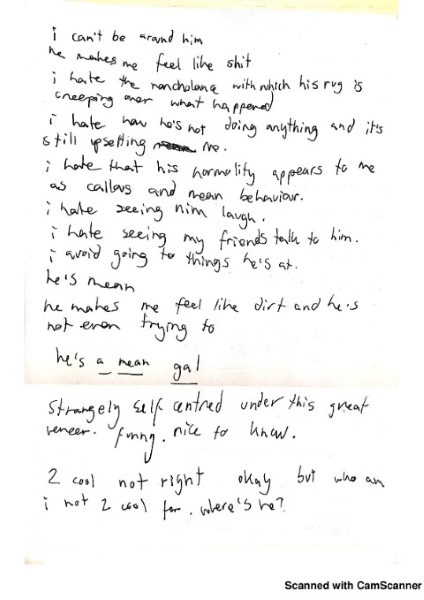 i can't be around him
he makes me feel like shit
i hate the nonchalance with which his rug is
creeping over what happened
i hate how he's not doing anything and it's
still upsetting me.
i hate that his normality appears to me
as callous and mean behaviour.
i hate seeing him laugh.
i hate seeing my friends talk to him.
i avoid going to things he's at.
he's mean
he makes me feel like dirt and he's
not even trying to
he's a mean gal
strangely self centred under this great
veneer. funny. nice to know.
2 cool not right okay but who am
i not 2 cool for. where's he?
Scanned with CamScanner